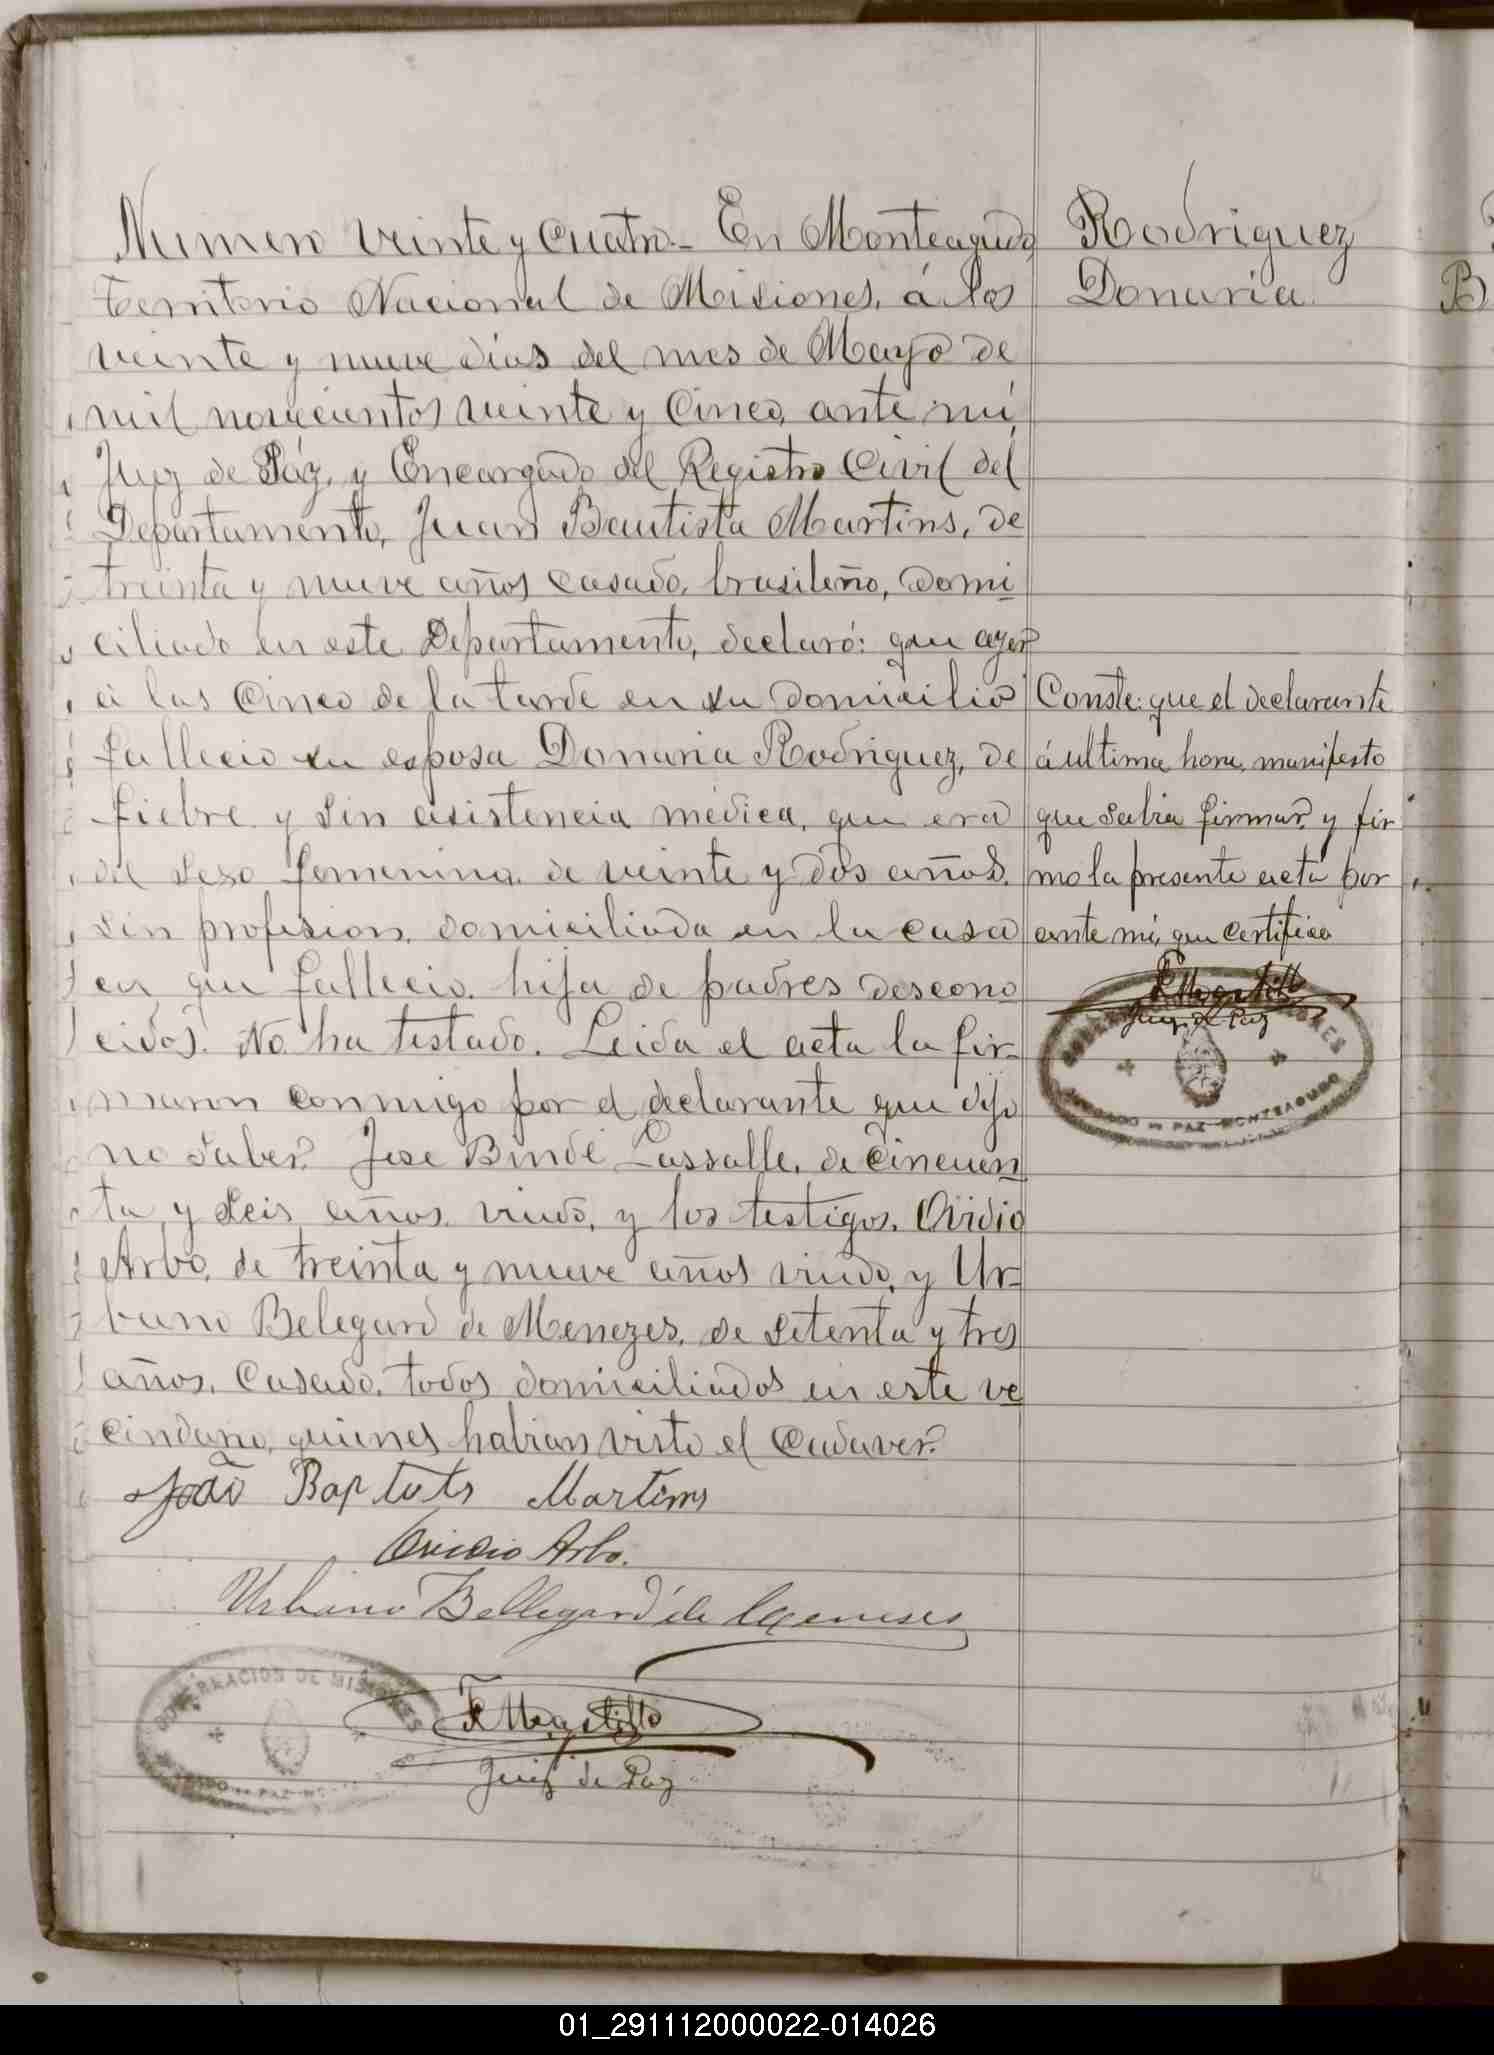 Numero veinte y cuatro.- En Monteagudo,
Territorio Nacional de Misiones, á los
veinte y nueve dias del mes de Mayo de
mil novecientos veinte y cinco, ante mí,
Juez de Páz, y Encargado del Registro Civil del
Departamento, Juan Bautista Martins, de
treinta y nueve años casado, brasileño, domi
ciliado en este Departamento, declaró: que ayer
á las cinco de la tarde en su domicilio
fallecio su esposa Donaria Rodriguez, de
fiebre y sin asistencia médica, que era
del sexo femenina, de veinte y dos años,
sin profesion, domiciliada en la casa
en que fallecio, hija de padres descono
cidos. No ha testado. Leida el acta la fir-
maron conmigo por el declarante que dijo
no saber. Jose Bindé Lassalle, de cincuen
ta y seis años, viudo, y los testigos, Ovidio
Arbo, de treinta y nueve años viudo, y Ur-
bano Belegard de Menezes, de setenta y tres
años, casado, todos domiciliados en este ve
cindario, quienes habian visto el cadaver.
João Baptista Martins
Ovidio Arbo.
Urbano Bellegard de Menezes
GOBERNACION DE MISIONES
Juez de Paz
Rodriguez
Donaria
Conste: que el declarante
á ultima hora, manifesto
que sabia firmar y fir
mo la presente acta por
ante mi, que certifico
Juez de Paz
JUZGADO DE PAZ MONTEAGUDO
B
01_291112000022-014026